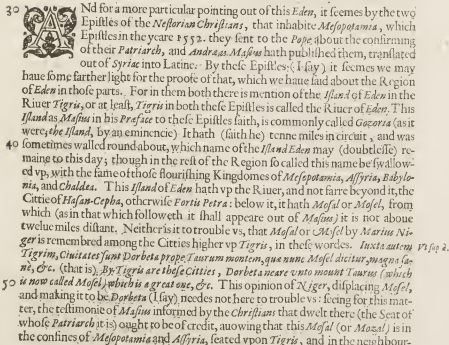 30 ANd for a more particular pointing out of this Eden, it seemes by the two
Epistles of the Nestorian Christians, that inhabite Mesopotamia, which
Epistles in the yeare 1552. they sent to the Pope about the confirming
of their Patriarch, and Andraeas Masius hath published them, translated
out of Syriac into Latine. By these Epistles (I say) it seemes we may
haue some farther light for the proofe of that, which we haue said about the Region
of Eden in those parts. For in them both there is mention of the Island of Eden in the
Riuer Tigris, or at least, Tigris in both these Epistles is called the Riuer of Eden. This
Island as Masius in his Preface to these Epistles saith, is commonly called Gozoria (as it
were, the Island, by an eminencie) It hath (saith he) tenne miles in circuit, and was
40 sometimes walled round about, which name of the Island Eden may (doubtlesse) re-
maine to this day; though in the rest of the Region so called this name be swallow-
ed vp, with the fame of those flourishing Kingdomes of Mesopotamia, Assyria, Babylo-
nia, and Chaldea. This Island of Eden hath vp the Riuer, and not farre beyond it, the
Cittie of Hasan-Cepha, otherwise Fortis Petra: below it, it hath Mosal or Mosel, from
which (as in that which followeth it shall appeare out of Masius) it is not aboue
twelue miles distant. Neither is it to trouble vs, that Mosal or Mosel by Marius Ni-
ger is remembred among the Citties higher vp Tigris, in these wordes. Iuxta autem
Tigrim, Ciuitates sunt Dorbeta prope Taurum montem, quæ nunc Mosel dicitur, magna sa-
ne, &c. (that is) By Tigris are these Citties, Dorbeta neare vnto mount Taurus (which
50 is now called Mosel) which is a great one, &c. This opinion of Niger, displacing Mosel,
and making it to be Dorbeta (I say) needes not here to trouble vs: seeing for this mat-
ter, the testimonie of Masius informed by the Christians that dwelt there (the Seat of
whose Patriarch it is) ought to be of credit, auowing that this Mosal (or Mozal) is in
the confines of Mesopotamia and Assyria, seated vpon Tigris, and in the neighbour-